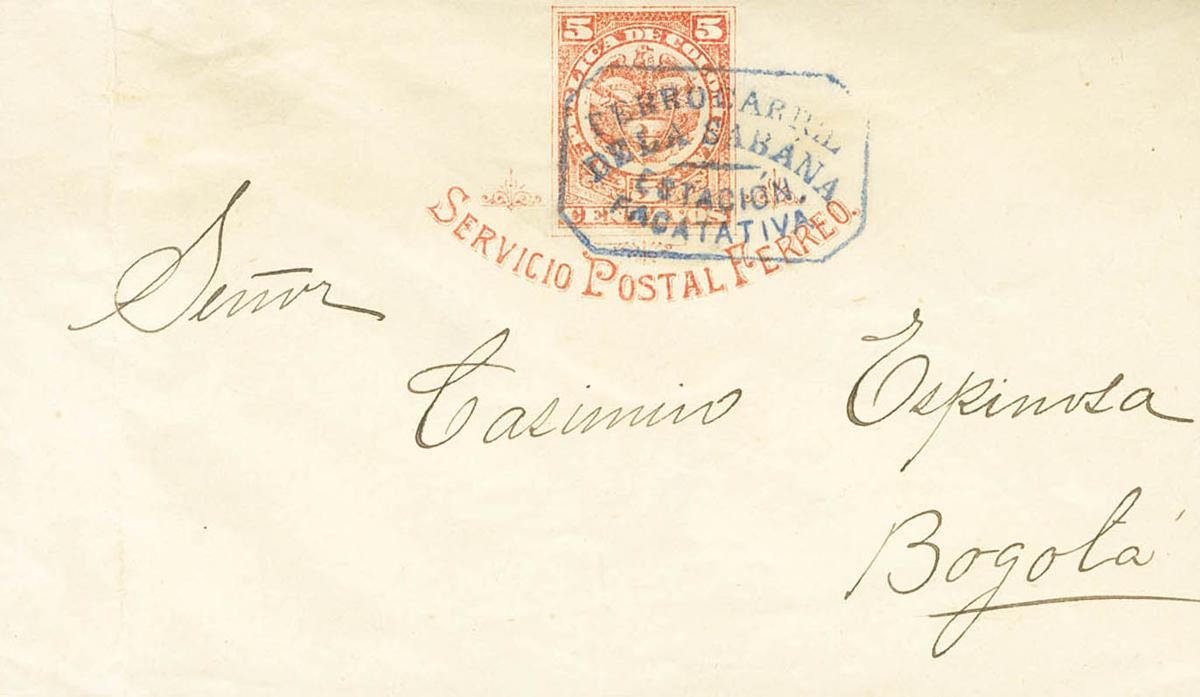 5 5
REPUBLICA DE COLOMBIA
CENTAVOS
FERROCARRIL
DE LA SABANA
ESTACIÓN.
FACATATIVA
SERVICIO POSTAL FERREO.
Señor
Casimiro Espinosa
Bogotá